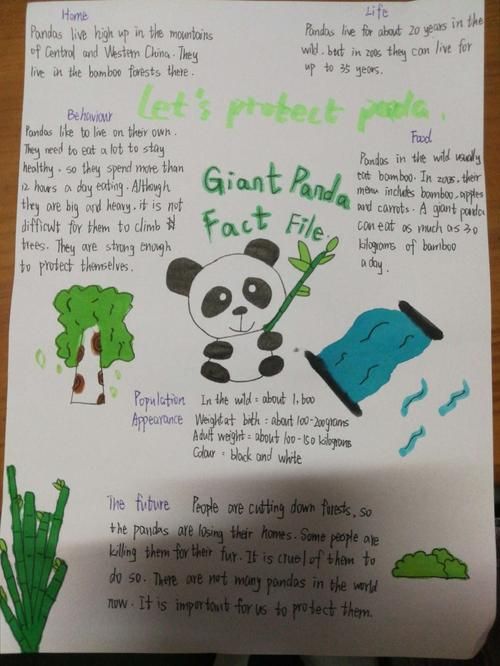 Home
Pandas live high up in the mountains
of Central and Western China. They
live in the bamboo forests there.
Life
Pandas live for about 20 years in the
wild. but in zoos they can live for
up to 35 years.
Let's protect panda.
Behaviour
Pandas like to live on their own.
They need to eat a lot to stay
healthy. so they spend more than
12 hours a day eating. Although
they are big and heavy. it is not
difficult for them to climb
trees. They are strong enough
to protect themselves.
Giant Panda
Fact File.
Food
Pandas in the wild usually
eat bamboo. In zoos, their
menu includes bamboo, apples
and carrots. A giant panda
can eat as much as 30
kilograms of bamboo
a day.
Population In the wild = about 1,600
Appearance Weight at bith = about 100-200grams
Adult weight = about 100-150 kilograms
Colour = black and white
The future People are cutting down forests, so
the pandas are losing their homes. Some people are
killing them for their fur. It is cruel of them to
do so. There are not many pandas in the world
now. It is important for us to protect them.